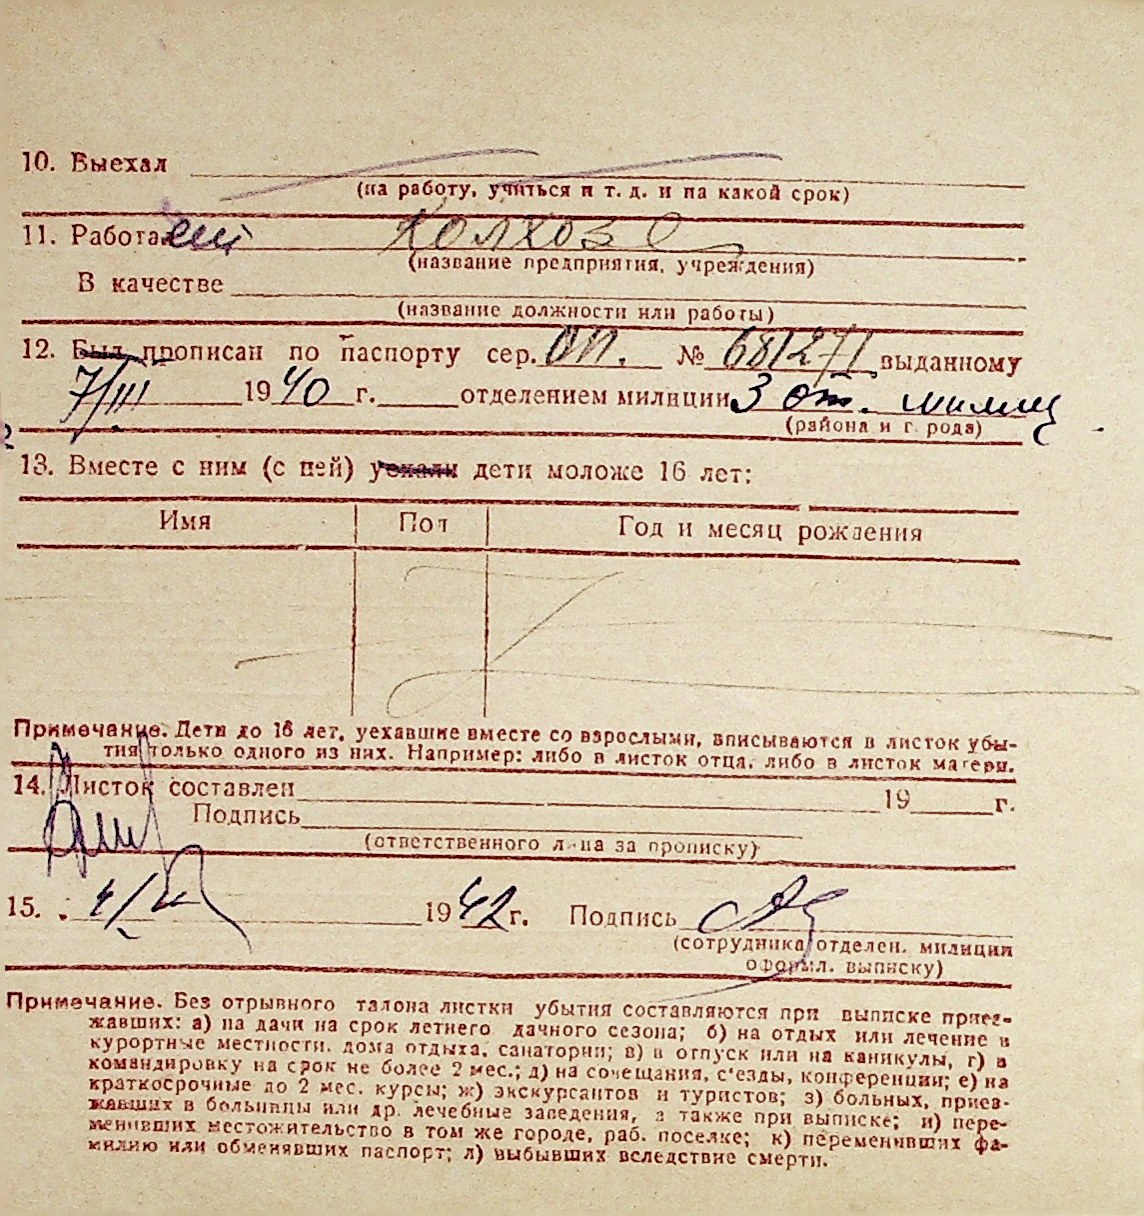 10. Выехал
(на работу, учиться и т. д. и на какой срок)
11. Работает Колхоз
(название предприятия, учреждения)
В качестве
(название должности или работы)
12. Был прописан по паспорту сер. ОП. № 681271 выданному
7/III 1940 г. отделением милиции 3 от. милиц
(района и города)
13. Вместе с ним (с ней) уехали дети моложе 16 лет:
Имя Пол Год и месяц рождения
Примечание. Дети до 16 лет, уехавшие вместе со взрослыми, вписываются в листок убы-
тия только одного из них. Например: либо в листок отца, либо в листок матери.
14. Листок составлен 19 г.
Подпись
(ответственного лица за прописку)
15. 1942 г. Подпись
(сотрудника отделен. милиции
оформл. выписку)
Примечание. Без отрывного талона листки убытия составляются при выписке приез-
жавших: а) на дачи на срок летнего дачного сезона; б) на отдых или лечение в
курортные местности, дома отдыха, санатории; в) в отпуск или на каникулы, г) в
командировку на срок не более 2 мес.; д) на сочещания, с'езды, конференции; е) на
краткосрочные до 2 мес. курсы; ж) экскурсантов и туристов; з) больных, приез-
жавших в больницы или др. лечебные заведения, а также при выписке; и) пере-
менивших местожительство в том же городе, раб. поселке; к) переменивших фа-
милию или обменявших паспорт; л) выбывших вследствие смерти.